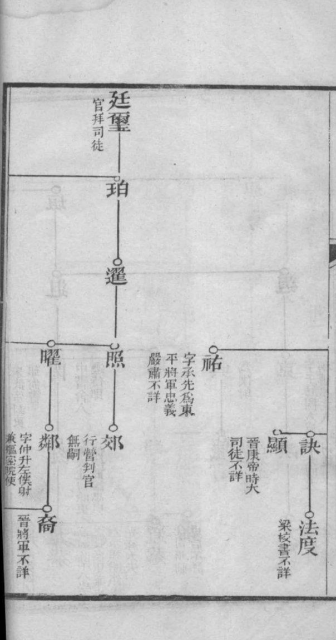 訣
顯
晉康帝時大
司徒不詳
法度
梁校書不詳
祐
字承先爲東
平將軍忠義
嚴肅不詳
廷璽
官拜司徒
珀
暹
照
曜
郊
行營判官
無嗣
鄰
字仲升左僕射
裔
晉將軍不詳